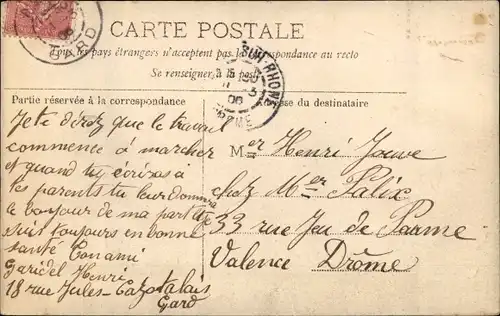 CARTE POSTALE
Tous les pays étrangers n'acceptent pas la correspondance au recto
Se renseigner à la poste
Partie réservée à la correspondance
Adresse du destinataire
GARD
SUR-RHONE
Je te direz que le travail
commence à marcher
et quand tu écriras à
tes parents tu leur donnera
le bonjour de ma part
suis toujours en bonne
santé Ton ami
Garidel Henri
18 rue Jules-Cazot alais
Gard
Mer Henri Jouve
chez Mer Palix
33 rue Jeu de Parme
Valence Drôme